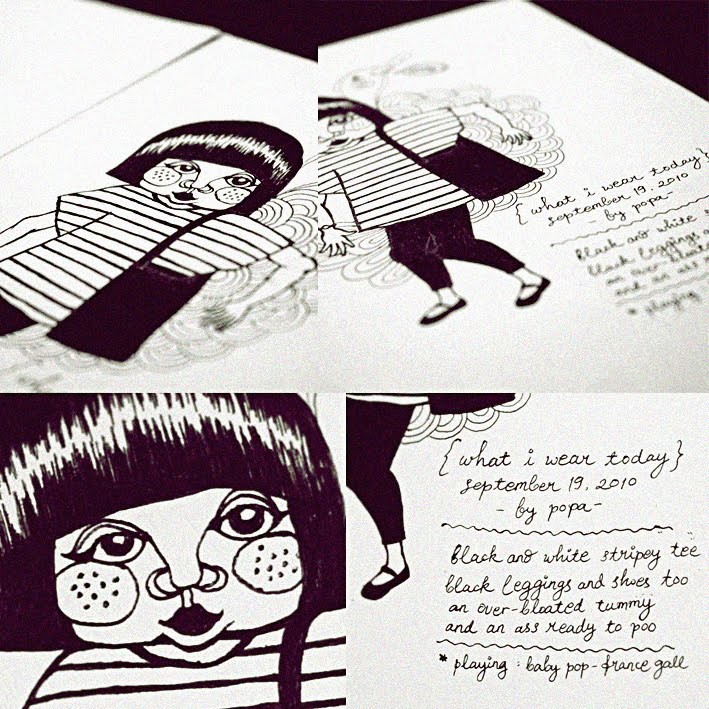 {what i wear today}
september 19, 2010
by popa-
black and white s
black leggings a
an over-bloate
and an ass
* playing
{what i wear today}
september 19, 2010
- by popa -
black and white stripey tee
black leggings and shoes too
an over-bloated tummy
and an ass ready to poo
* playing : baby pop - france gall